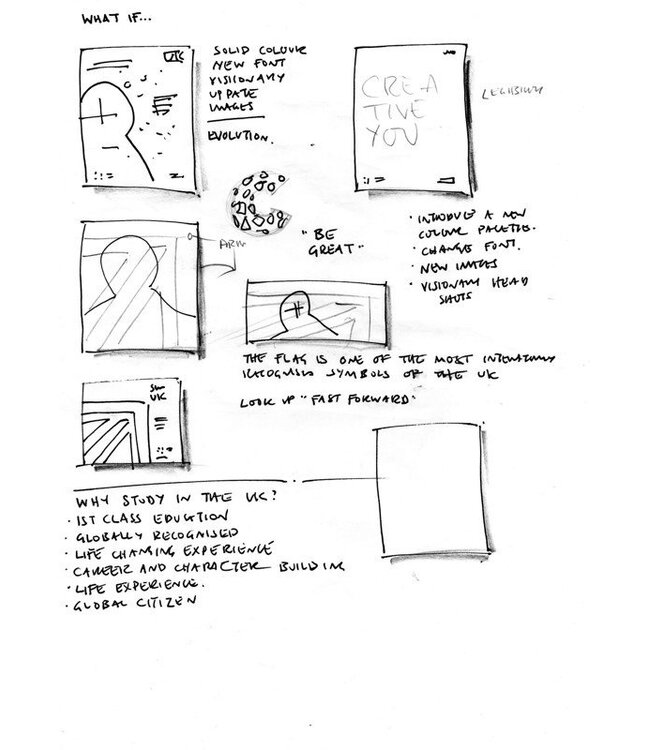 WHAT IF...
UK
SOLID COLOUR
NEW FONT
VISIONARY
UPDATE
IMAGES
EVOLUTION.
CREA
TIVE
YOU
LEGIBILITY
"BE
GREAT"
· INTRODUCE A NEW
COLOUR PALETTE.
· CHANGE FONT.
· NEW IMAGES
· VISIONARY HEAD
SHOTS
THE FLAG IS ONE OF THE MOST
RECOGNISED SYMBOLS OF THE UK
LOOK UP "FAST FORWARD"
UK
WHY STUDY IN THE UK?
· 1ST CLASS EDUCTION
· GLOBALLY RECOGNISED
· LIFE CHANGING EXPERIENCE
· CAREER AND CHARACTER BUILDING
· LIFE EXPERIENCE.
· GLOBAL CITIZEN